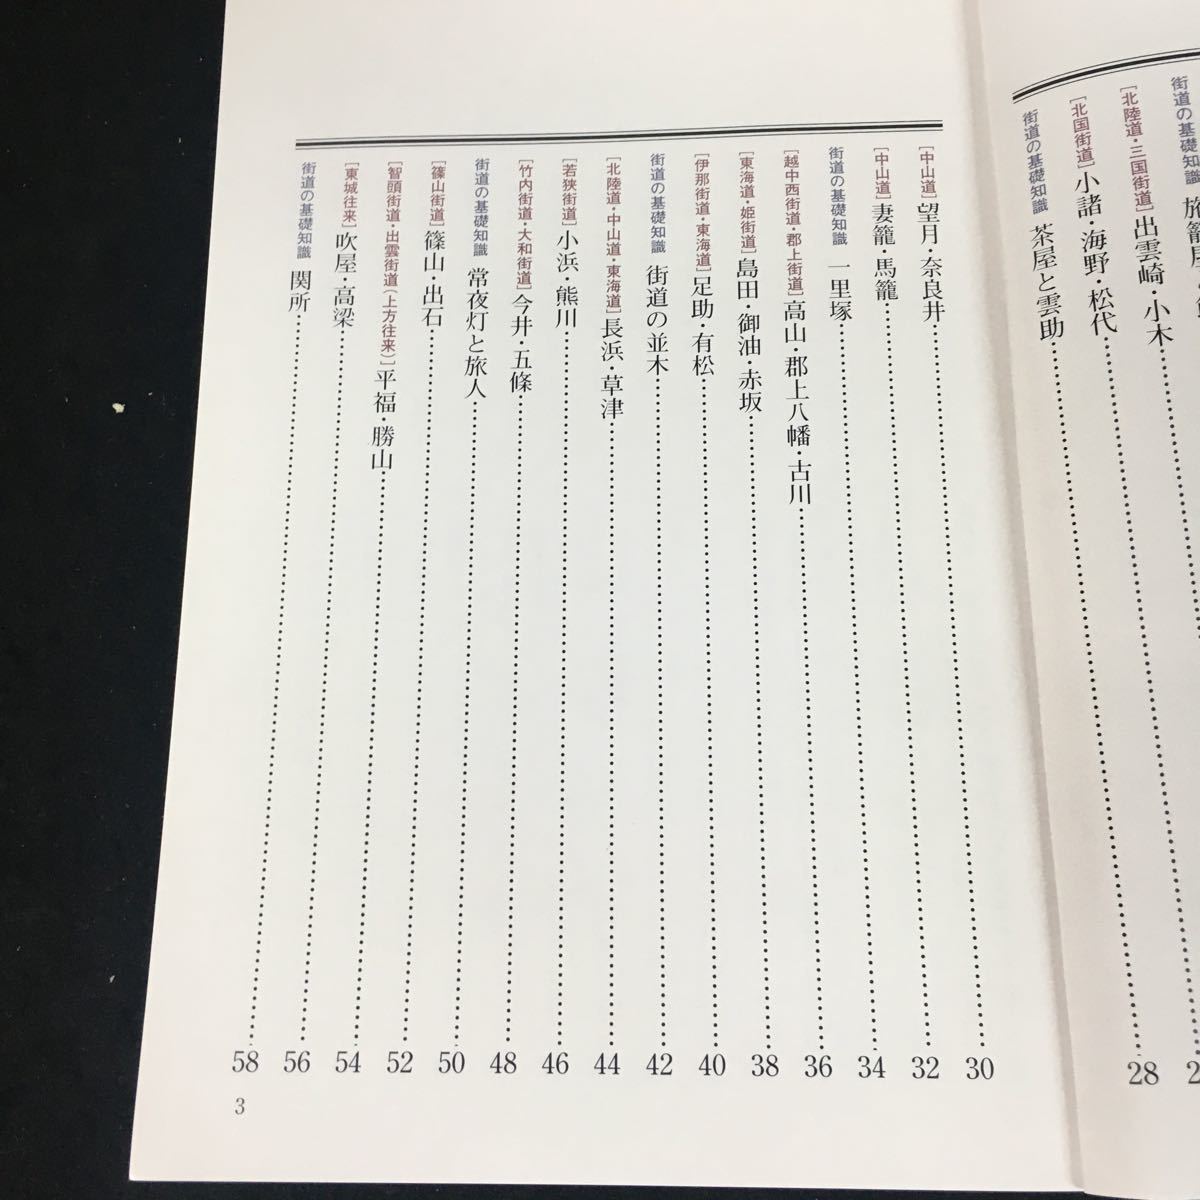 街道の基礎知識 旅籠屋
[北陸道・三国街道] 出雲崎・小木
[北国街道] 小諸・海野・松代
街道の基礎知識 茶屋と雲助……28
[中山道] 望月・奈良井……30
[中山道] 妻籠・馬籠……32
街道の基礎知識 一里塚……34
[越中西街道・郡上街道] 高山・郡上八幡・古川……36
[東海道・姫街道] 島田・御油・赤坂……38
[伊那街道・東海道] 足助・有松……40
街道の基礎知識 街道の並木……42
[北陸道・中山道・東海道] 長浜・草津……44
[若狭街道] 小浜・熊川……46
[竹内街道・大和街道] 今井・五條……48
街道の基礎知識 常夜灯と旅人……50
[篠山街道] 篠山・出石……52
[智頭街道・出雲街道(上方往来)] 平福・勝山……54
[東城往来] 吹屋・高梁……56
街道の基礎知識 関所……58
3